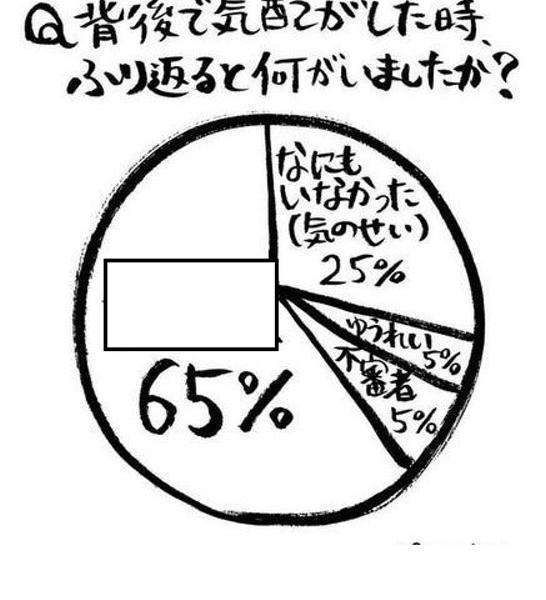 Q背後で気配がした時、
ふり返ると何がいましたか？
なにも
いなかった
(気のせい)
25%
ゆうれい
5%
不審者
5%
65%